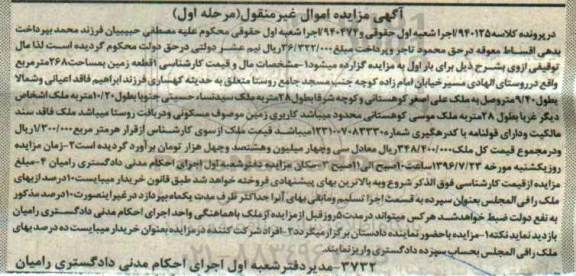 آگهی مزایده اموال غیرمنقول(مرحله اول)
درپرونده کلاسه۹۴۰۱۲۵/اجرا شعبه اول حقوقی و۹۴۰۴۷۲/اجرا شعبه اول حقوقی محکوم علیه مصطفی حبیبیان فرزند محمد بپرداخت
بدهی اقساط معوقه درحق محمود تاجر وپرداخت مبلغ۳۶/۳۲۲/۰۰۰ریال نیم عشر دولتی درحق دولت محکوم گردیده است لذا مال
توقیفی ازوی بشرح ذیل برای بار اول به مزایده گزارده میشود۱-مشخصات مال و قیمت کارشناسی ۱قطعه زمین بمساحت۲۶۸مترمربع
واقع درروستای الهادی مسیرخیابان امام زاده کوچه جنب مسجد جامع روستا متعلق به حدیثه کهساری فرزند ابراهیم فاقد اعیانی وشمالا
بطول۹/۲۰متروصل به ملک علی اصغر کوهستانی و کوچه شرقا بطول۲۸متربه ملک سیدنساء حسینی جنوبا بطول۱۰/۲۰متربه ملک اشخاص
دیگر غربا بطول ۲۸متربه ملک موسی کوهستانی محدود میباشد کاربری زمین موصوف مسکونی ودربافت روستا میباشد ملک فاقد سند
مالکیت ودارای قولنامه با کدرهگیری شماره۱۲۳۱۰۰۷۰۸۳۳۳۰میباشد قیمت ملک ازسوی کارشناس ازقرار هرمتر مربع۱/۳۰۰/۰۰۰ریال
ودرمجموع قیمت کل ملک ۳۴۸/۴۰۰/۰۰۰ریال معادل سی وچهار میلیون وهشتصد وچهل هزار تومان برآورد گردیده است۲-زمان مزایده
روزیکشنبه مورخه ۱۳۹۶/۷/۲۳ ساعت۱۰صبح الی۱۱صبح۳-مکان مزایده دفترشعبه اول اجرای احکام مدنی دادگستری رامیان ۴-مبلغ
مزایده ازقیمت کارشناسی فوق الذکر شروع وبه بالاترین بهای پیشنهادی فروخته خواهد شد طبق قانون خریدار میبایست۱۰درصد ازبهای
ملک رافی المجلس بعنوان سپرده به قسمت اجرا تسلیم ومابقی بهای آنرا حداکثر ظرف مدت یکماه بپردازد درغیراینصورت۱۰درصد مذکور
به نفع دولت ضبط خواهدشد هرکس میتواند درمدت۵روزقبل ازمزایده ازملک باهماهنگی واحد اجرای احکام مدنی دادگستری رامیان
بازدید نماید نکته۱-مزایده باحضور نماینده دادستان برگزار میگردد۲-افراد شرکت کننده درمزایده بعنوان خریدار میبایست ده درصد بهای
ملک رافی المجلس بحساب سپرده دادگستری واریز نمایند
۳۷۳۲-مدیردفترشعبه اول اجرای احکام مدنی دادگستری رامیان